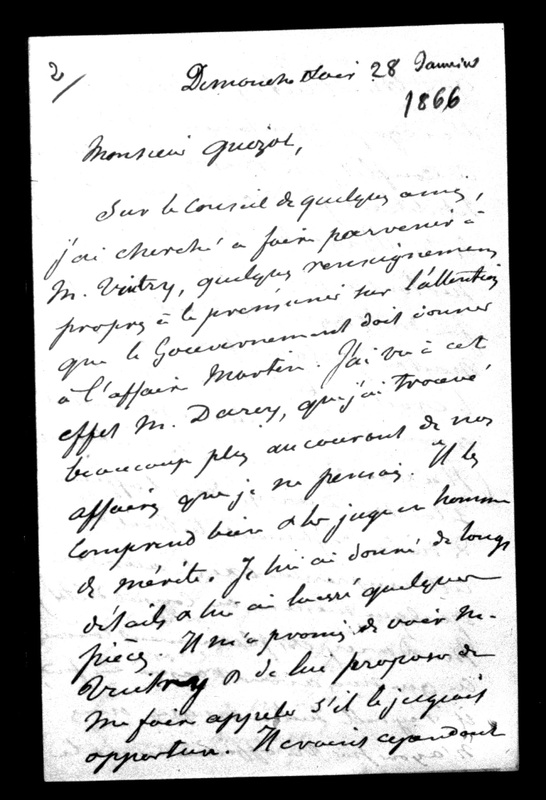 2/
Dimanche soir 28 Janvier
1866
Monsieur Guizot,
Sur le conseil de quelques amis,
j'ai cherché à faire parvenir à
M. Vuitry, quelques renseignemens
propres à le prémunir sur l'attention
que le Gouvernement doit donner
à l'affaire Martin. J'ai vu à cet
effet M. Darcy, que j'ai trouvé
beaucoup plus au courant de nos
affaires que je ne pensais. Il les
comprend bien & les juge en homme
de mérite. Je lui ai donné de longs
détails & lui ai laissé quelques
pièces. Il m'a promis de voir M.
Vuitry & de lui proposer de
me faire appeler s'il le jugeait
opportun. Il craint cependant